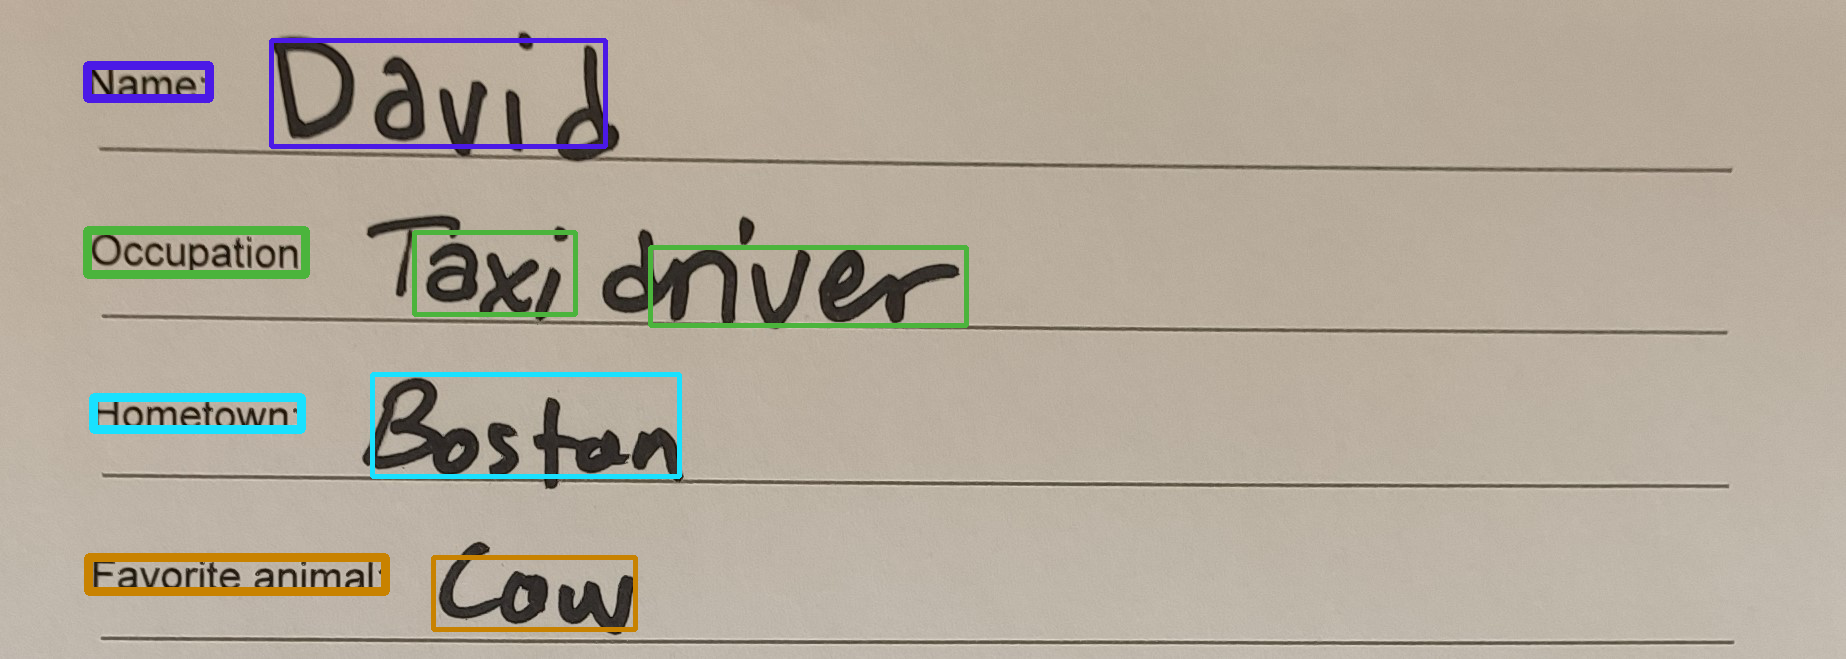 Name: David
Occupation Taxi driver
Hometown: Boston
Favorite animal: Cow